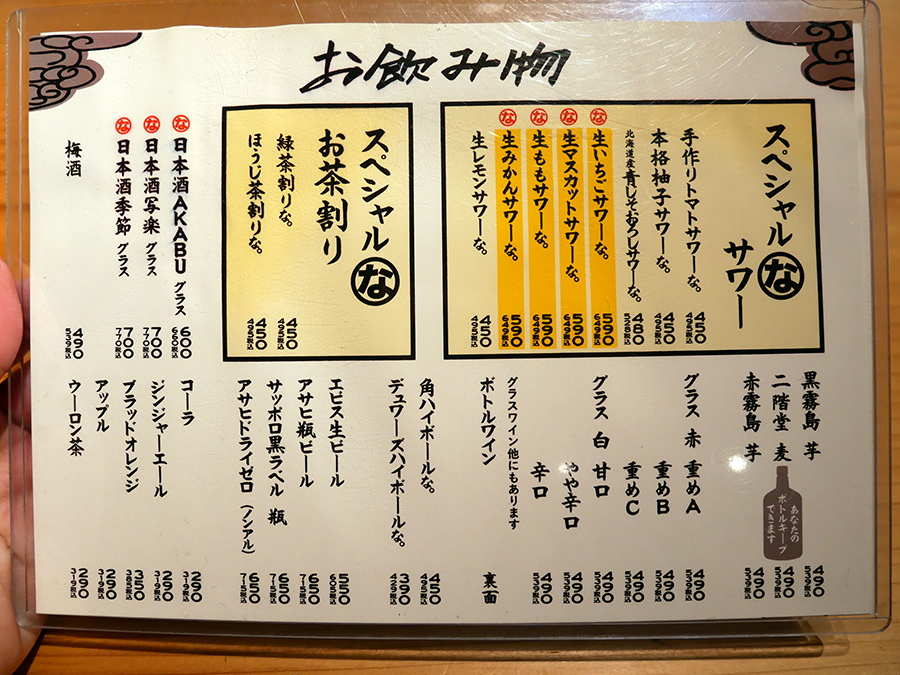 お飲み物
スペシャル
な
サワー
手作りトマトサワーな。 450 495税込
本格柚子サワーな。 450 495税込
北海道産 青しそおろしサワーな。 480 528税込
な 生いちごサワーな。 590 649税込
な 生マスカットサワーな。 590 649税込
な 生ももサワーな。 590 649税込
な 生みかんサワーな。 590 649税込
生レモンサワーな。 450 495税込
スペシャル
な
お茶割り
緑茶割りな。 450 495税込
ほうじ茶割りな。 450 495税込
な 日本酒AKABU グラス 600 660税込
な 日本酒写楽 グラス 700 770税込
な 日本酒季節 グラス 700 770税込
梅酒 490 539税込
黒霧島 芋 490 539税込
二階堂 麦 490 539税込
赤霧島 芋 490 539税込
あなたの
ボトルキープ
できます
グラス 赤 重めA 490 539税込
重めB 490 539税込
重めC 490 539税込
グラス 白 甘口 490 539税込
やや辛口 490 539税込
辛口 490 539税込
グラスワイン他にもあります
ボトルワイン 裏面
角ハイボールな。 450 495税込
デュワーズハイボールな。 390 429税込
エビス生ビール 550 605税込
アサヒ瓶ビール 650 715税込
サッポロ黒ラベル 瓶 650 715税込
アサヒドライゼロ（ノンアル） 650 715税込
コーラ 290 319税込
ジンジャーエール 290 319税込
ブラッドオレンジ 350 385税込
アップル 290 319税込
ウーロン茶 290 319税込